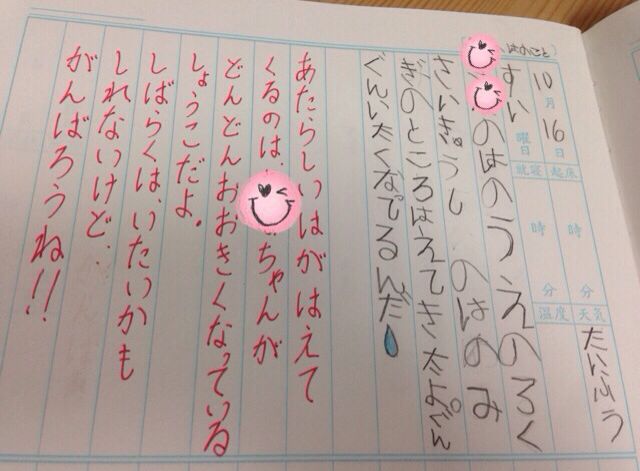 はのこと)
10月16日
すい曜日
就寝 起床
時 分 時 分
温度 天気
たいふう
のはのうえのろく
さいきゅうし のはのみ
ぎのところはえてきたよ。ぐん
ぐんいたくなってるんだ
あたらしいはがはえて
くるのは、 ちゃんが
どんどんおおきくなっている
しょうこだよ。
しばらくは、いたいかも
しれないけど…
がんばろうね!!